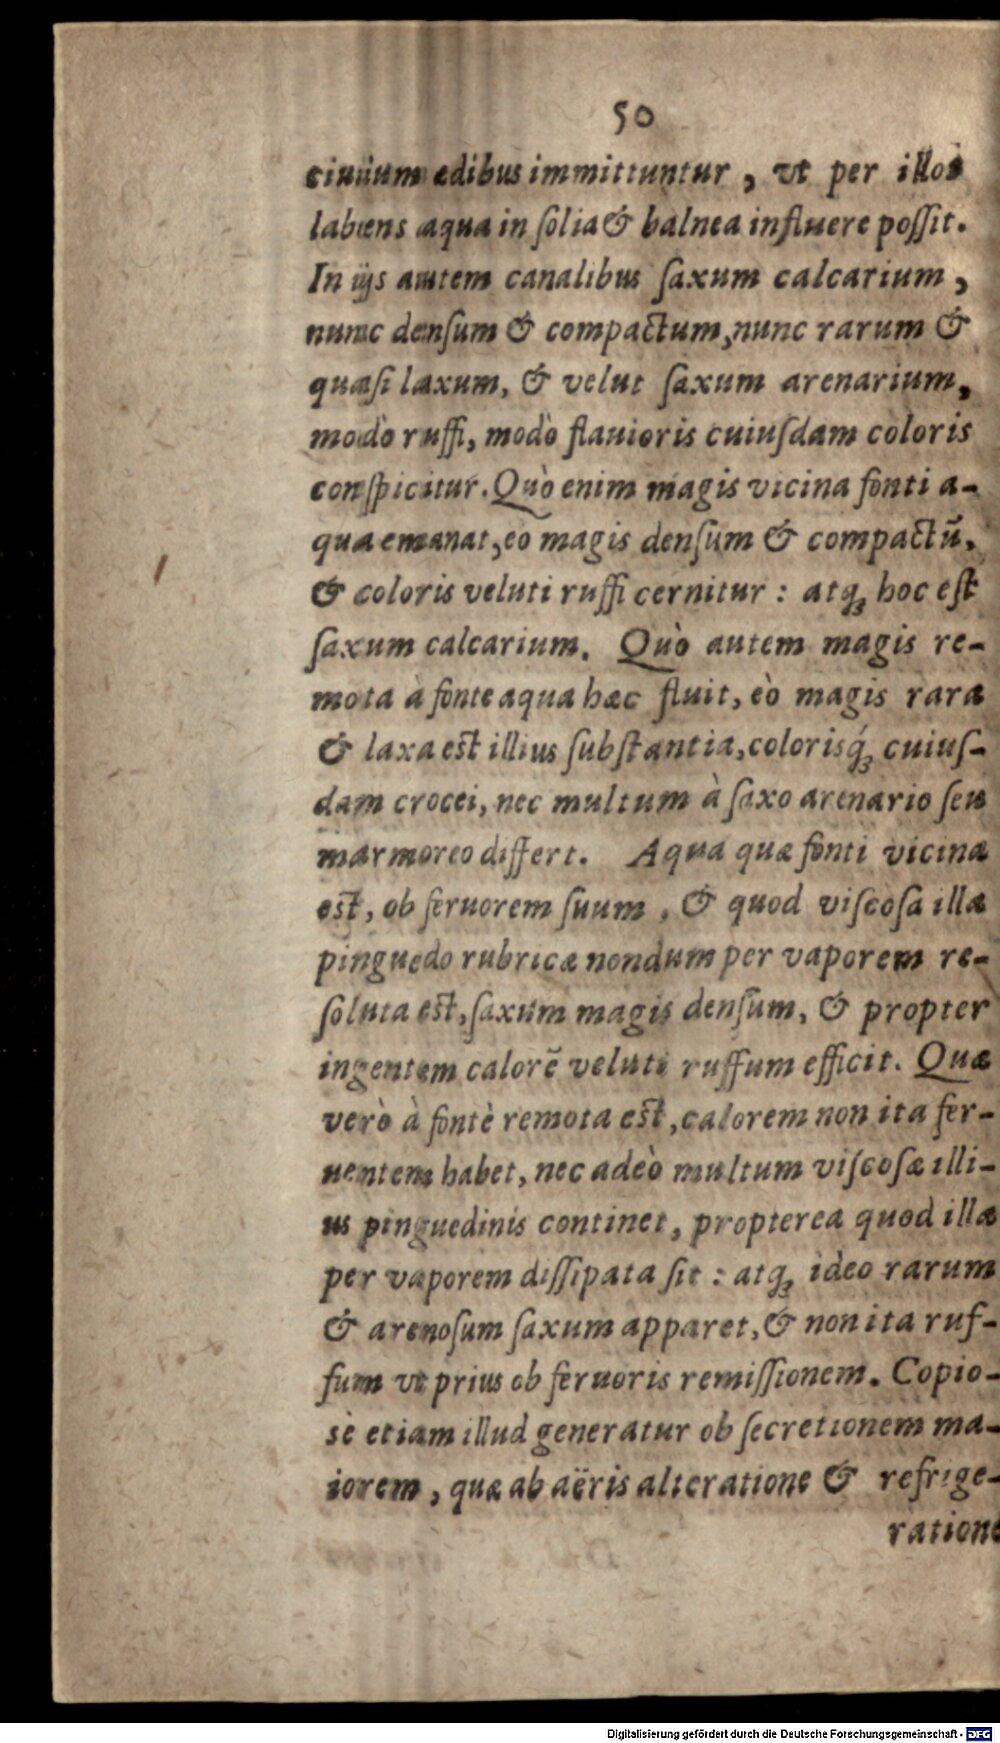 50
ciuium ædibus immittuntur, vt per illos
labens aqua in ſolia & balnea influere poſſit.
In ijs autem canalibus ſaxum calcarium,
nunc denſum & compactum, nunc rarum &
quaſi laxum, & velut ſaxum arenarium,
modò ruffi, modò flauioris cuiuſdam coloris
conſpicitur. Quò enim magis vicina fonti a-
qua emanat, eo magis denſum & compactū,
& coloris veluti ruffi cernitur: atq́ꝫ hoc eſt
ſaxum calcarium. Quò autem magis re-
mota à fonte aqua hæc fluit, eò magis rara
& laxa eſt illius ſubſtantia, coloriſq́ꝫ cuiuſ-
dam crocei, nec multum à ſaxo arenario ſeu
marmoreo differt. Aqua quæ fonti vicina
eſt, ob feruorem ſuum, & quod viſcoſa illa
pinguedo rubricæ nondum per vaporem re-
ſoluta eſt, ſaxum magis denſum, & propter
ingentem calorē veluti ruffum efficit. Quæ
verò à fontè remota eſt, calorem non ita fer-
uentem habet, nec adeò multum viſcoſæ illi-
us pinguedinis continet, propterea quod illa
per vaporem diſſipata ſit: atqꝫ idèo rarum
& arenoſum ſaxum apparet, & non ita ruf-
fum vt prius ob feruoris remiſſionem. Copio-
sè etiam illud generatur ob ſecretionem ma-
iorem, quæ ab aëris alteratione & refrige-
ratione
Digitalisierung gefördert durch die Deutsche Forschungsgemeinschaft - DFG